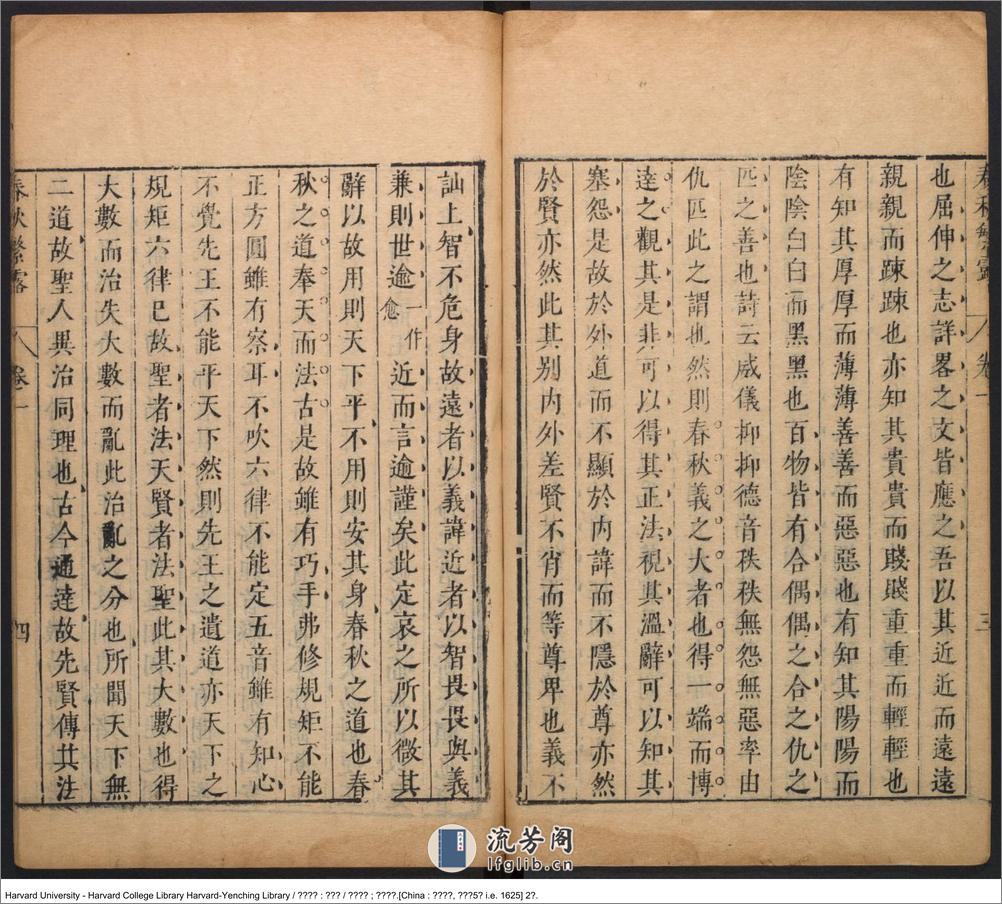 春秋繁露 卷一 三
也屈伸之志詳畧之文皆應之吾以其近近而遠遠
親親而踈踈也亦知其貴貴而賤賤重重而輕輕也
有知其厚厚而薄薄善善而惡惡也有知其陽陽而
陰陰白白而黑黑也百物皆有合偶偶之合之仇之
匹之善也詩云威儀抑抑德音秩秩無怨無惡率由
仇匹此之謂也然則春秋義之大者也得一端而博
逹之觀其是非可以得其正法視其溫辭可以知其
塞怨是故於外道而不顯於内諱而不隱於尊亦然
於賢亦然此其别内外差賢不肖而等尊卑也義不
訕上智不危身故遠者以義諱近者以智畏畏與義
兼則世逾一作愈近而言逾謹矣此定哀之所以微其
辭以故用則天下平不用則安其身春秋之道也春
秋之道奉天而法古是故雖有巧手弗修規矩不能
正方圓雖有察耳不吹六律不能定五音雖有知心
不覺先王不能平天下然則先王之遺道亦天下之
規矩六律已故聖者法天賢者法聖此其大數也得
大數而治失大數而亂此治亂之分也所聞天下無
二道故聖人異治同理也古今通逹故先賢傳其法
春秋繁露 卷一 四
流芳阁
lfglib.cn
Harvard University - Harvard College Library Harvard-Yenching Library / ???? : ??? / ???? ; ????.[China : ????, ???5? i.e. 1625] 2?.